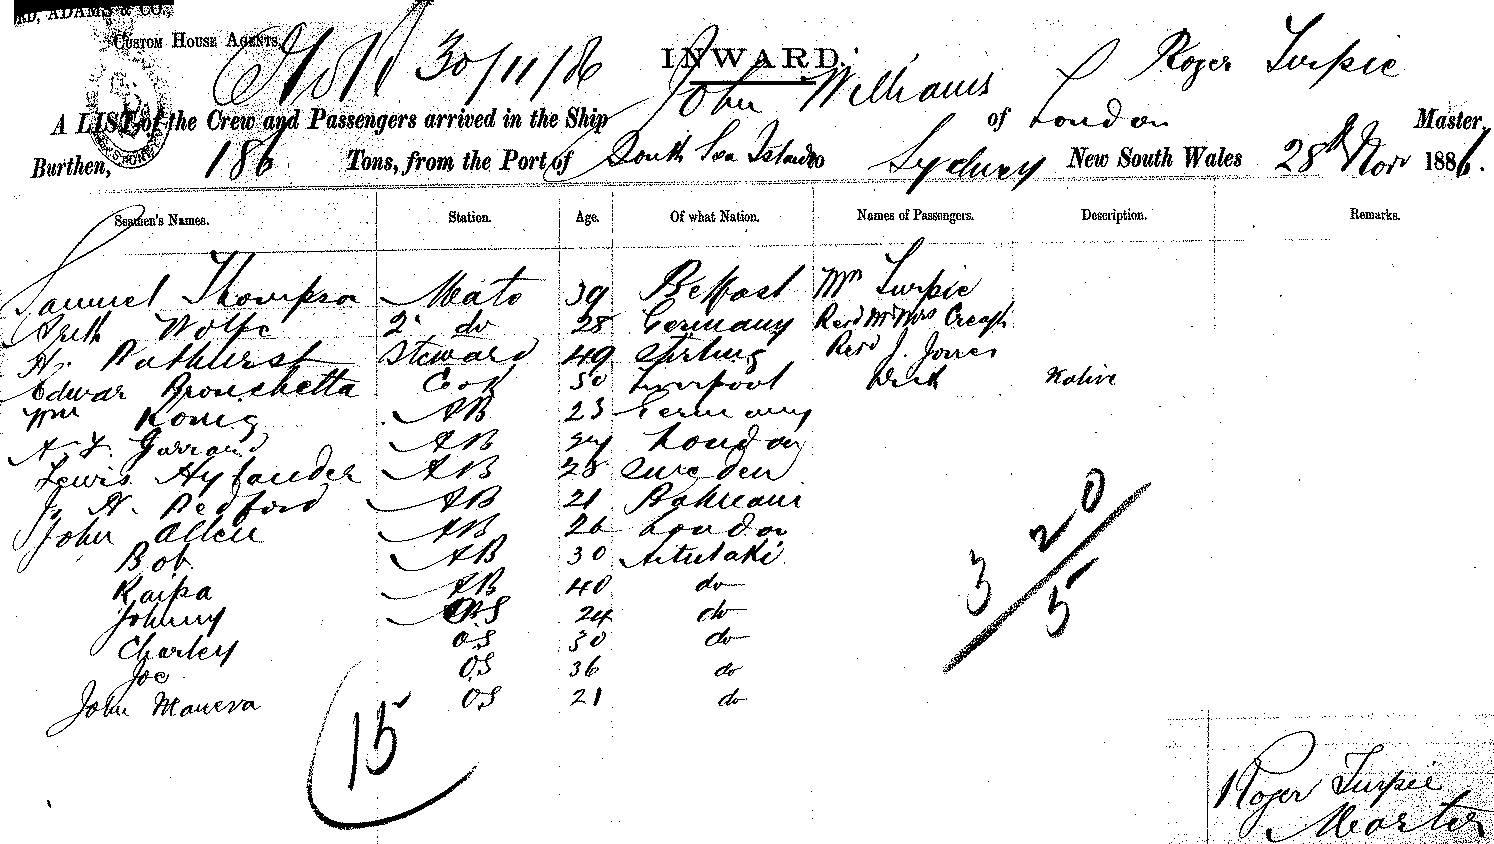 RD, ADAMS & CO.,
CUSTOM HOUSE AGENTS,
30/11/86
INWARD.
A LIST of the Crew and Passengers arrived in the Ship John Williams of London Roger Turpie Master,
Burthen, 186 Tons, from the Port of South Sea Islands to Sydney New South Wales 28th Nov 1886.
Seamen's Names. Station. Age. Of what Nation. Names of Passengers. Description. Remarks.
Samuel Thompson Mate 39 Belfast Mrs Turpie
Wolfe 2 do 28 Germany Revd Mr & Mrs
H. Bathurst Steward 49 Stirling Revd J. Jones
Edwar Cook 50 Liverpool Native
Wm Konig AB 23 Germany
Garrard AB London
Lewis Hylander AB 28 Sweden
J. H. Bedford AB 21
John Allen AB 26 London
Bob AB 30 Aitutaki
Kaipa AB 40 do
Johnny OS 24 do
Charley OS 30 do
Joe OS 36 do
John Maneva OS 21 do
3 20/5
15
Roger Turpie
Master